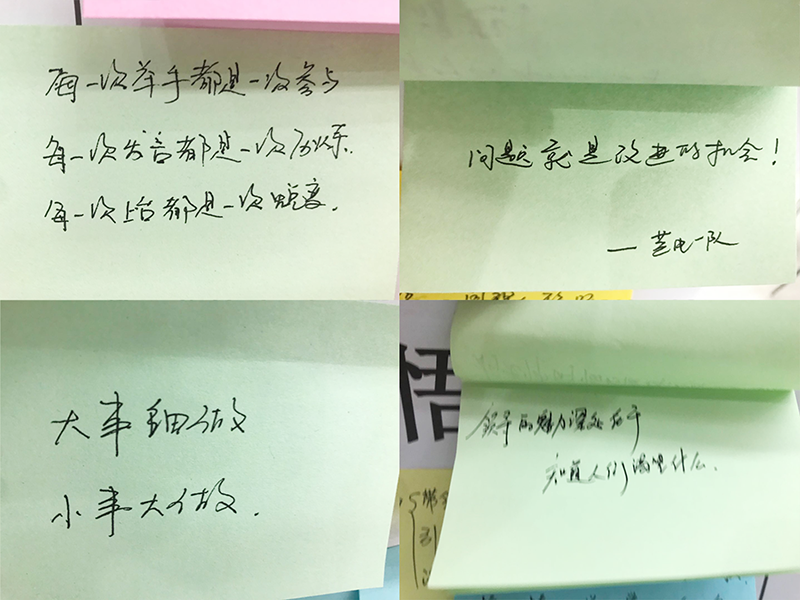 每一次举手都是一次参与
每一次发言都是一次历练.
每一次上台都是一次蜕变.
问题就是改进的机会!
一队
大事细做
小事大做.
领导的魅力深处在于
知道人们渴望什么.
悟